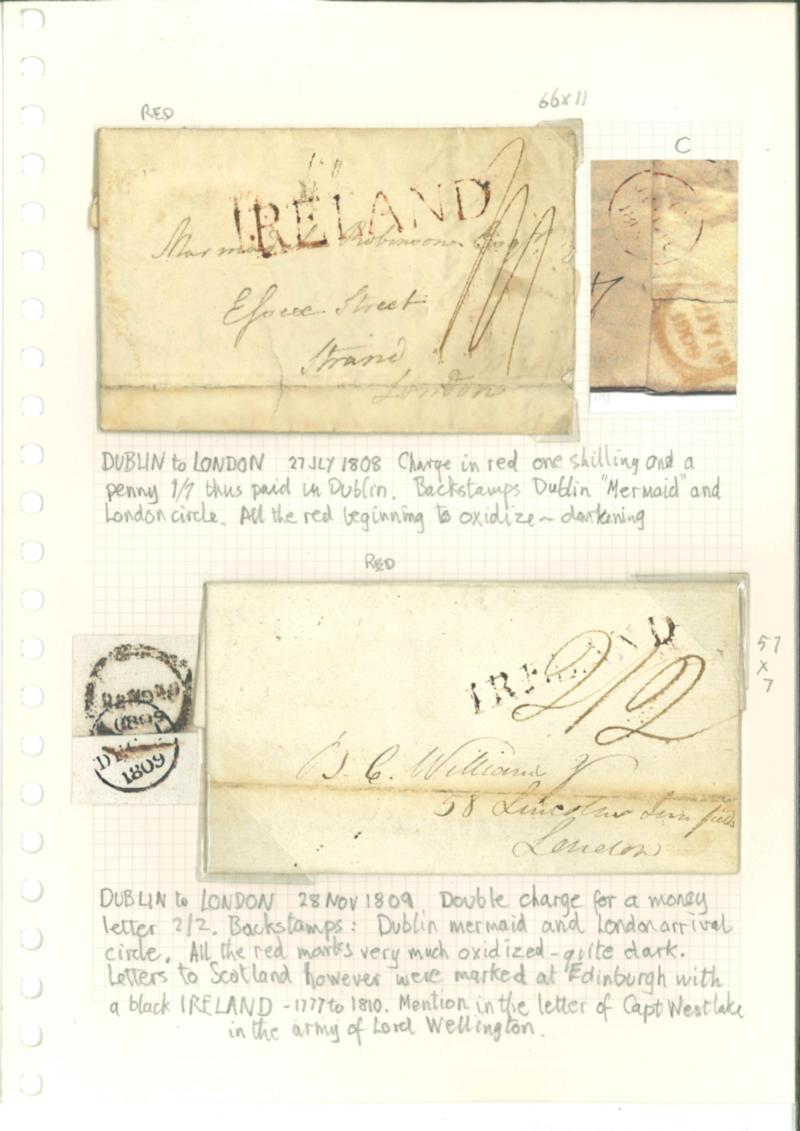 RED
66 x 11
C
IRELAND
Robinson Esqr
Essex Street
Strand
London
1808
DUBLIN to LONDON 27 JLY 1808 Charge in red one shilling and a
penny 1/1 thus paid in Dublin. Backstamps Dublin "Mermaid" and
London circle. All the red beginning to oxidize ~ darkening
RED
IRELAND
2/2
57
x
7
1809
DE
1809
C. William
58 Lincolns Inn fields
London
DUBLIN to LONDON 28 NOV 1809 Double charge for a money
letter 2/2. Backstamps: Dublin mermaid and London arrival
circle. All the red marks very much oxidized - quite dark.
Letters to Scotland however were marked at Edinburgh with
a black IRELAND - 1777 to 1810. Mention in the letter of Capt Westlake
in the army of Lord Wellington.